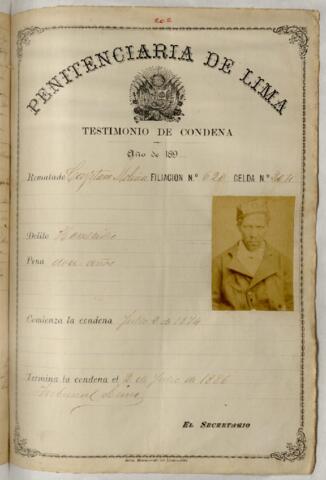 202
PENITENCIARIA DE LIMA
TESTIMONIO DE CONDENA
Año de 189
Rematado Cayetano Molina FILIACION N.º 620 CELDA N.º 204
Delito Homicidio
Pena doce años
Comienza la condena Julio 2 de 1874
Termina la condena el 2 de Julio de 1886
Tribunal Lima
EL SECRETARIO